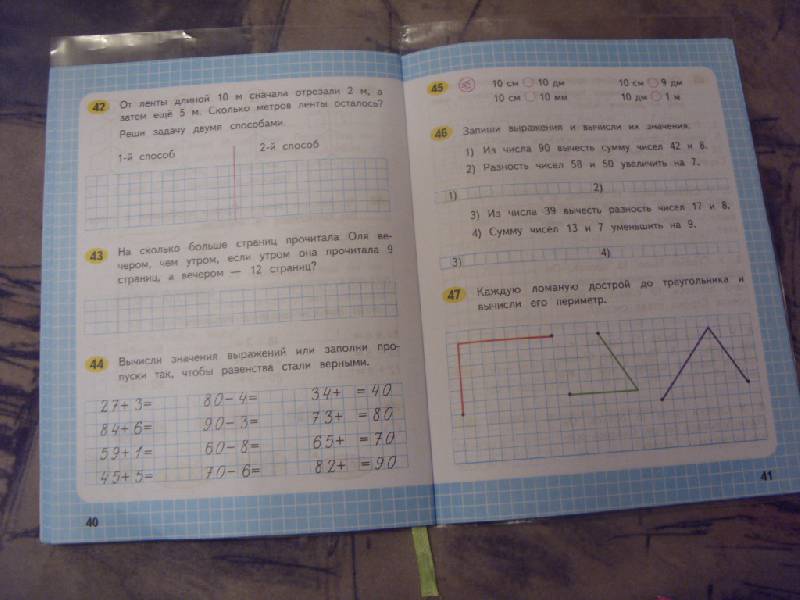 42 От ленты длиной 10 м сначали отрезали 2 м, а
затем ещё 5 м. Сколько метров ленты осталось?
Реши задачу двумя способами.
1-й способ 2-й способ
43 На сколько больше страниц прочитала Оля ве-
чером, чем утром, если утром она прочитала 9
страниц, а вечером — 12 страниц?
44 Вычисли значения выражений или заполни про-
пуски так, чтобы равенства стали верными.
27+3= 80-4= 34+ =40
84+6= 90-3= 73+ =80
59+1= 60-8= 65+ =70
45+5= 70-6= 82+ =90
40
45 10 см 10 дм 10 см 9 дм
10 см 10 мм 10 дм 1 м
46 Запиши выражения и вычисли их значения.
1) Из числа 90 вычесть сумму чисел 42 и 8.
2) Разность чисел 58 и 50 увеличить на 7.
1) 2)
3) Из числа 39 вычесть разность чисел 17 и 8.
4) Сумму чисел 13 и 7 уменьшить на 9.
3) 4)
47 Каждую ломаную дострой до треугольника и
вычисли его периметр.
41